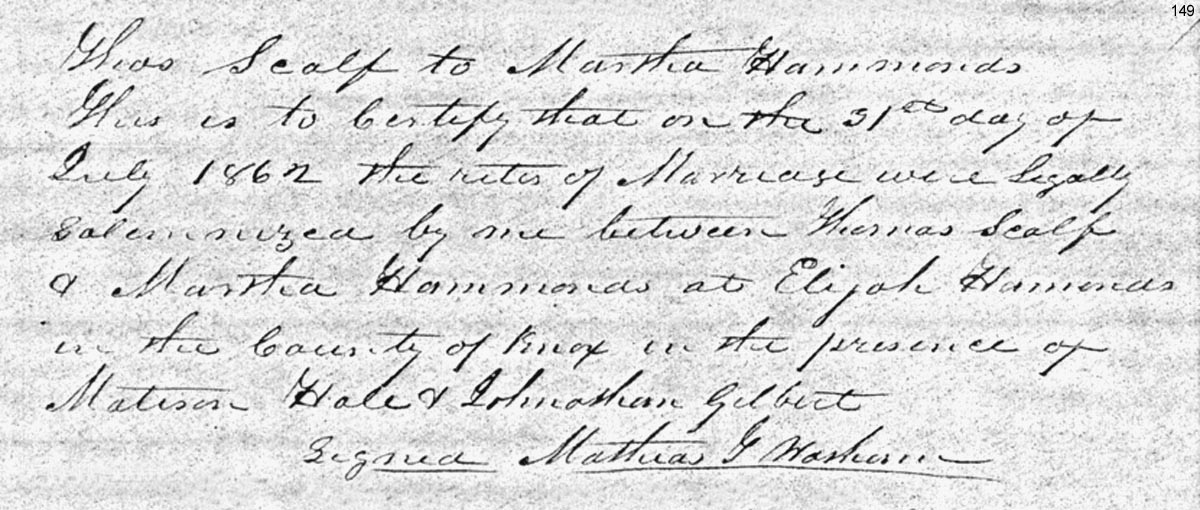 149
Thos Scalf to Martha Hammonds
This is to Certify that on the 31st day of
July 1862 the rites of Marriage were Legally
Solemnized by me between Thomas Scalf
& Martha Hammonds at Elijah Hamonds
in the County of Knox in the presence of
Matison Hale & Johnathan Gilbert
Signed Mathias G